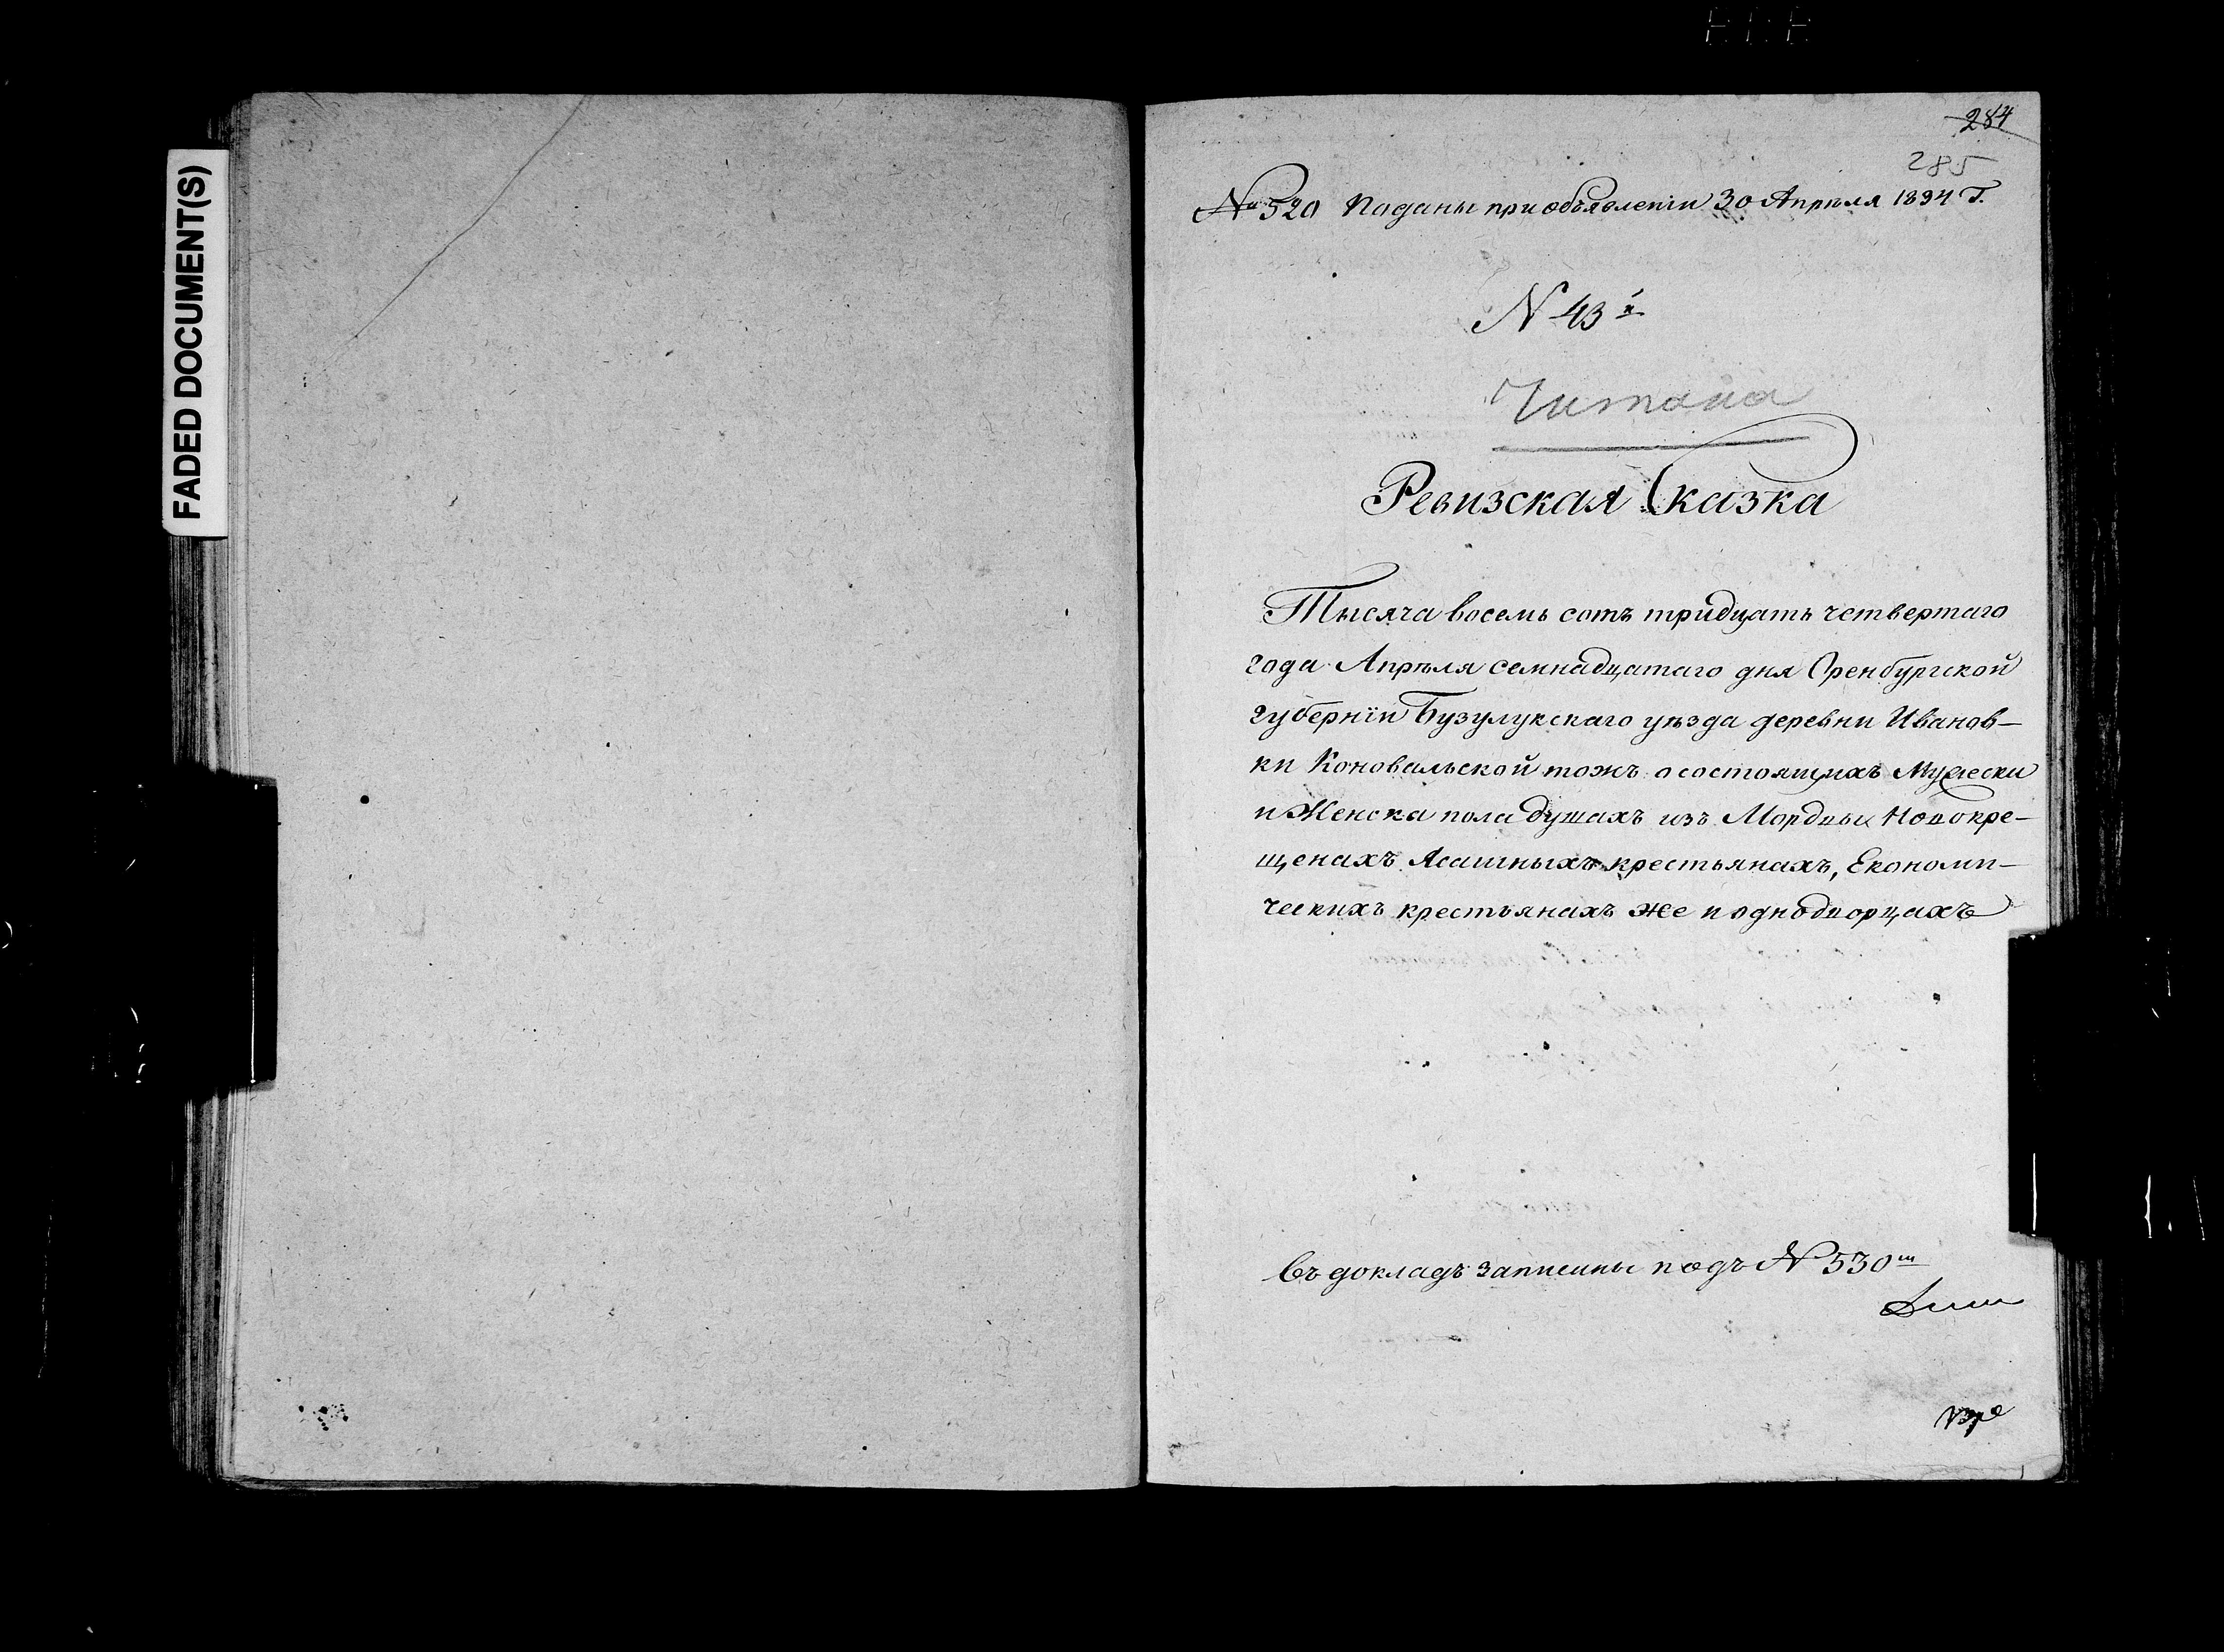 FADED DOCUMENT(S)
284
285
№ 520 Поданы при объявленіи 30 Апрѣля 1834 Г.
N 43й
Читана
Ревизская Сказка
Тысяча восемь сотъ тридцать четвертаго
года Апрѣля семнадцатаго дня Оренбургской
губерніи Бузулукскаго уѣзда деревни Иванов-
ки Коновальской тожъ о состоящихъ Мужеска
и Женска пола душахъ изъ Мордвы Новокре-
щенахъ Ясашныхъ крестьянахъ, Економи-
ческихъ крестьянахъ же и однодворцахъ
Въ докладъ записаны подъ № 530м